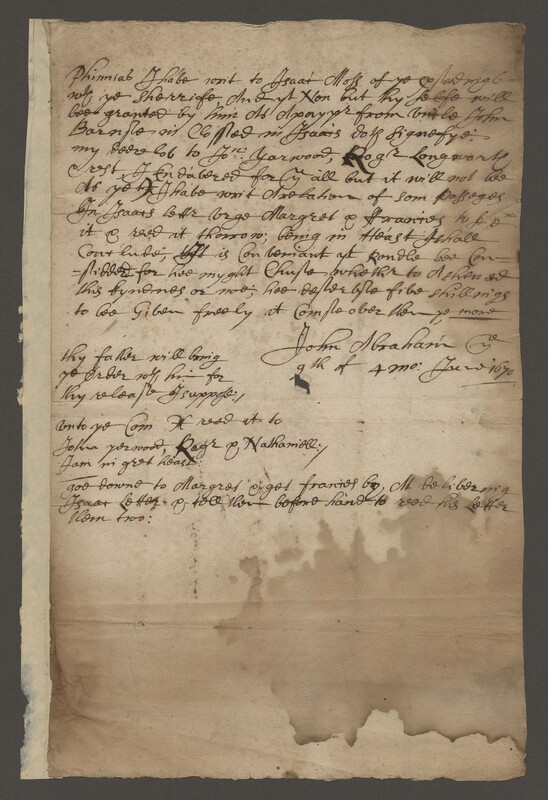 Phinnias I have writ to Isaac Moss of ye
with ye Sherrife And yt Non but thy selfe will
bee granted by him As Apapyr from Uncle John
Barnsle in Clossed in Isaacs doth Signefye:
my deere lov to Jon: Yarwood, Rogr Longworth
& rest I Endavered for ym all but it will not bee
As yet I have writ Arelation of som passeges
In Isaacs letter urge Margret & Francies to
it & reed it thorrow; being in Heast I shall
Conclude, is Conveniant yt Rondle bee Con-
-sidded for hee myght Chuse whethr to Ashewed
this kyndnes or noe: hee deserveth five shillings
to bee Given freely at Comeing over then ye more
John Abraham ye
9th of 4 mo: June 1670
thy father will bring
ye order with him for
thy release I suppose:/
unto ye Com reed it to
John yerwood, Rogr & Nathaniell:/
I am in gret heast
goe downe to Margret & get francies by At delivering
Isaac Letter & tell them before hand to reed this Letter
them two: